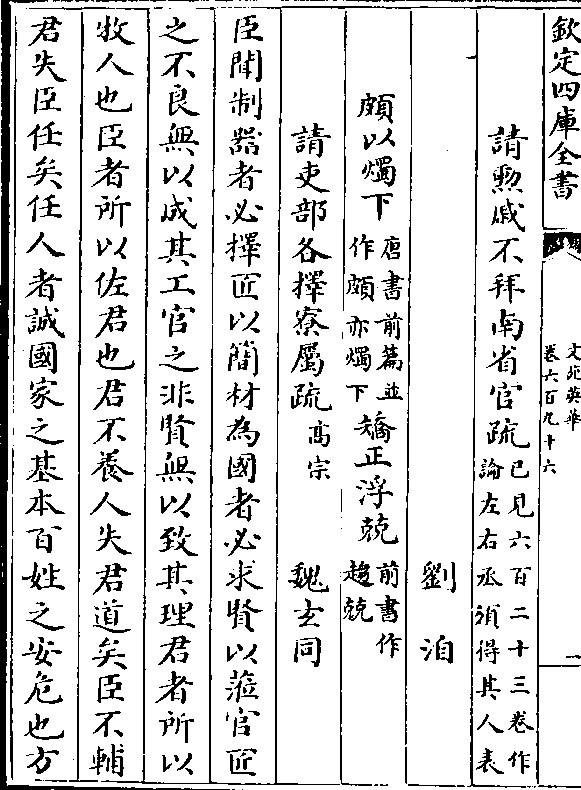 欽定四庫全書
文苑英華
卷六百九十六
一
請勲戚不拜南省官疏已見六百二十三卷作論左右丞須得其人表
劉洎
頗以燭下唐書前篇並作頗亦燭下矯正浮競前書作趨競
請吏部各擇寮屬疏高宗 魏玄同
臣聞制器者必擇匠以簡材為國者必求賢以蒞官匠
之不良無以成其工官之非賢無以致其理君者所以
牧人也臣者所以佐君也君不養人失君道矣臣不輔
君失臣任矣任人者誠國家之基本百姓之安危也方